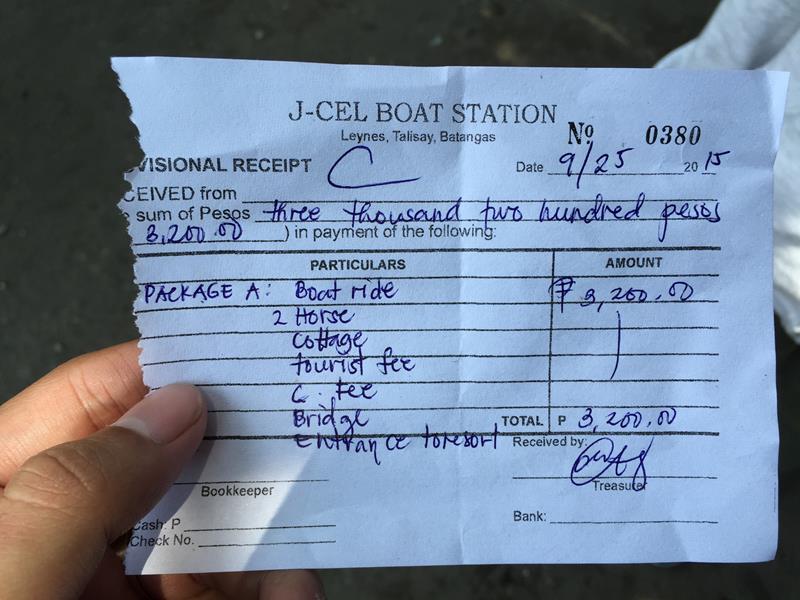 J-CEL BOAT STATION
Leynes, Talisay, Batangas
No 0380
VISIONAL RECEIPT
Date 9/25 2015
CEIVED from
sum of Pesos three thousand two hundred pesos
3,200.00 ) in payment of the following:
PARTICULARS AMOUNT
PACKAGE A: Boat ride ₱ 3,200.00
2 Horse
Cottage
tourist fee
C. fee
Bridge TOTAL P 3,200.00
Entrance to resort Received by:
Bookkeeper Treasurer
Cash: P Bank:
Check No.